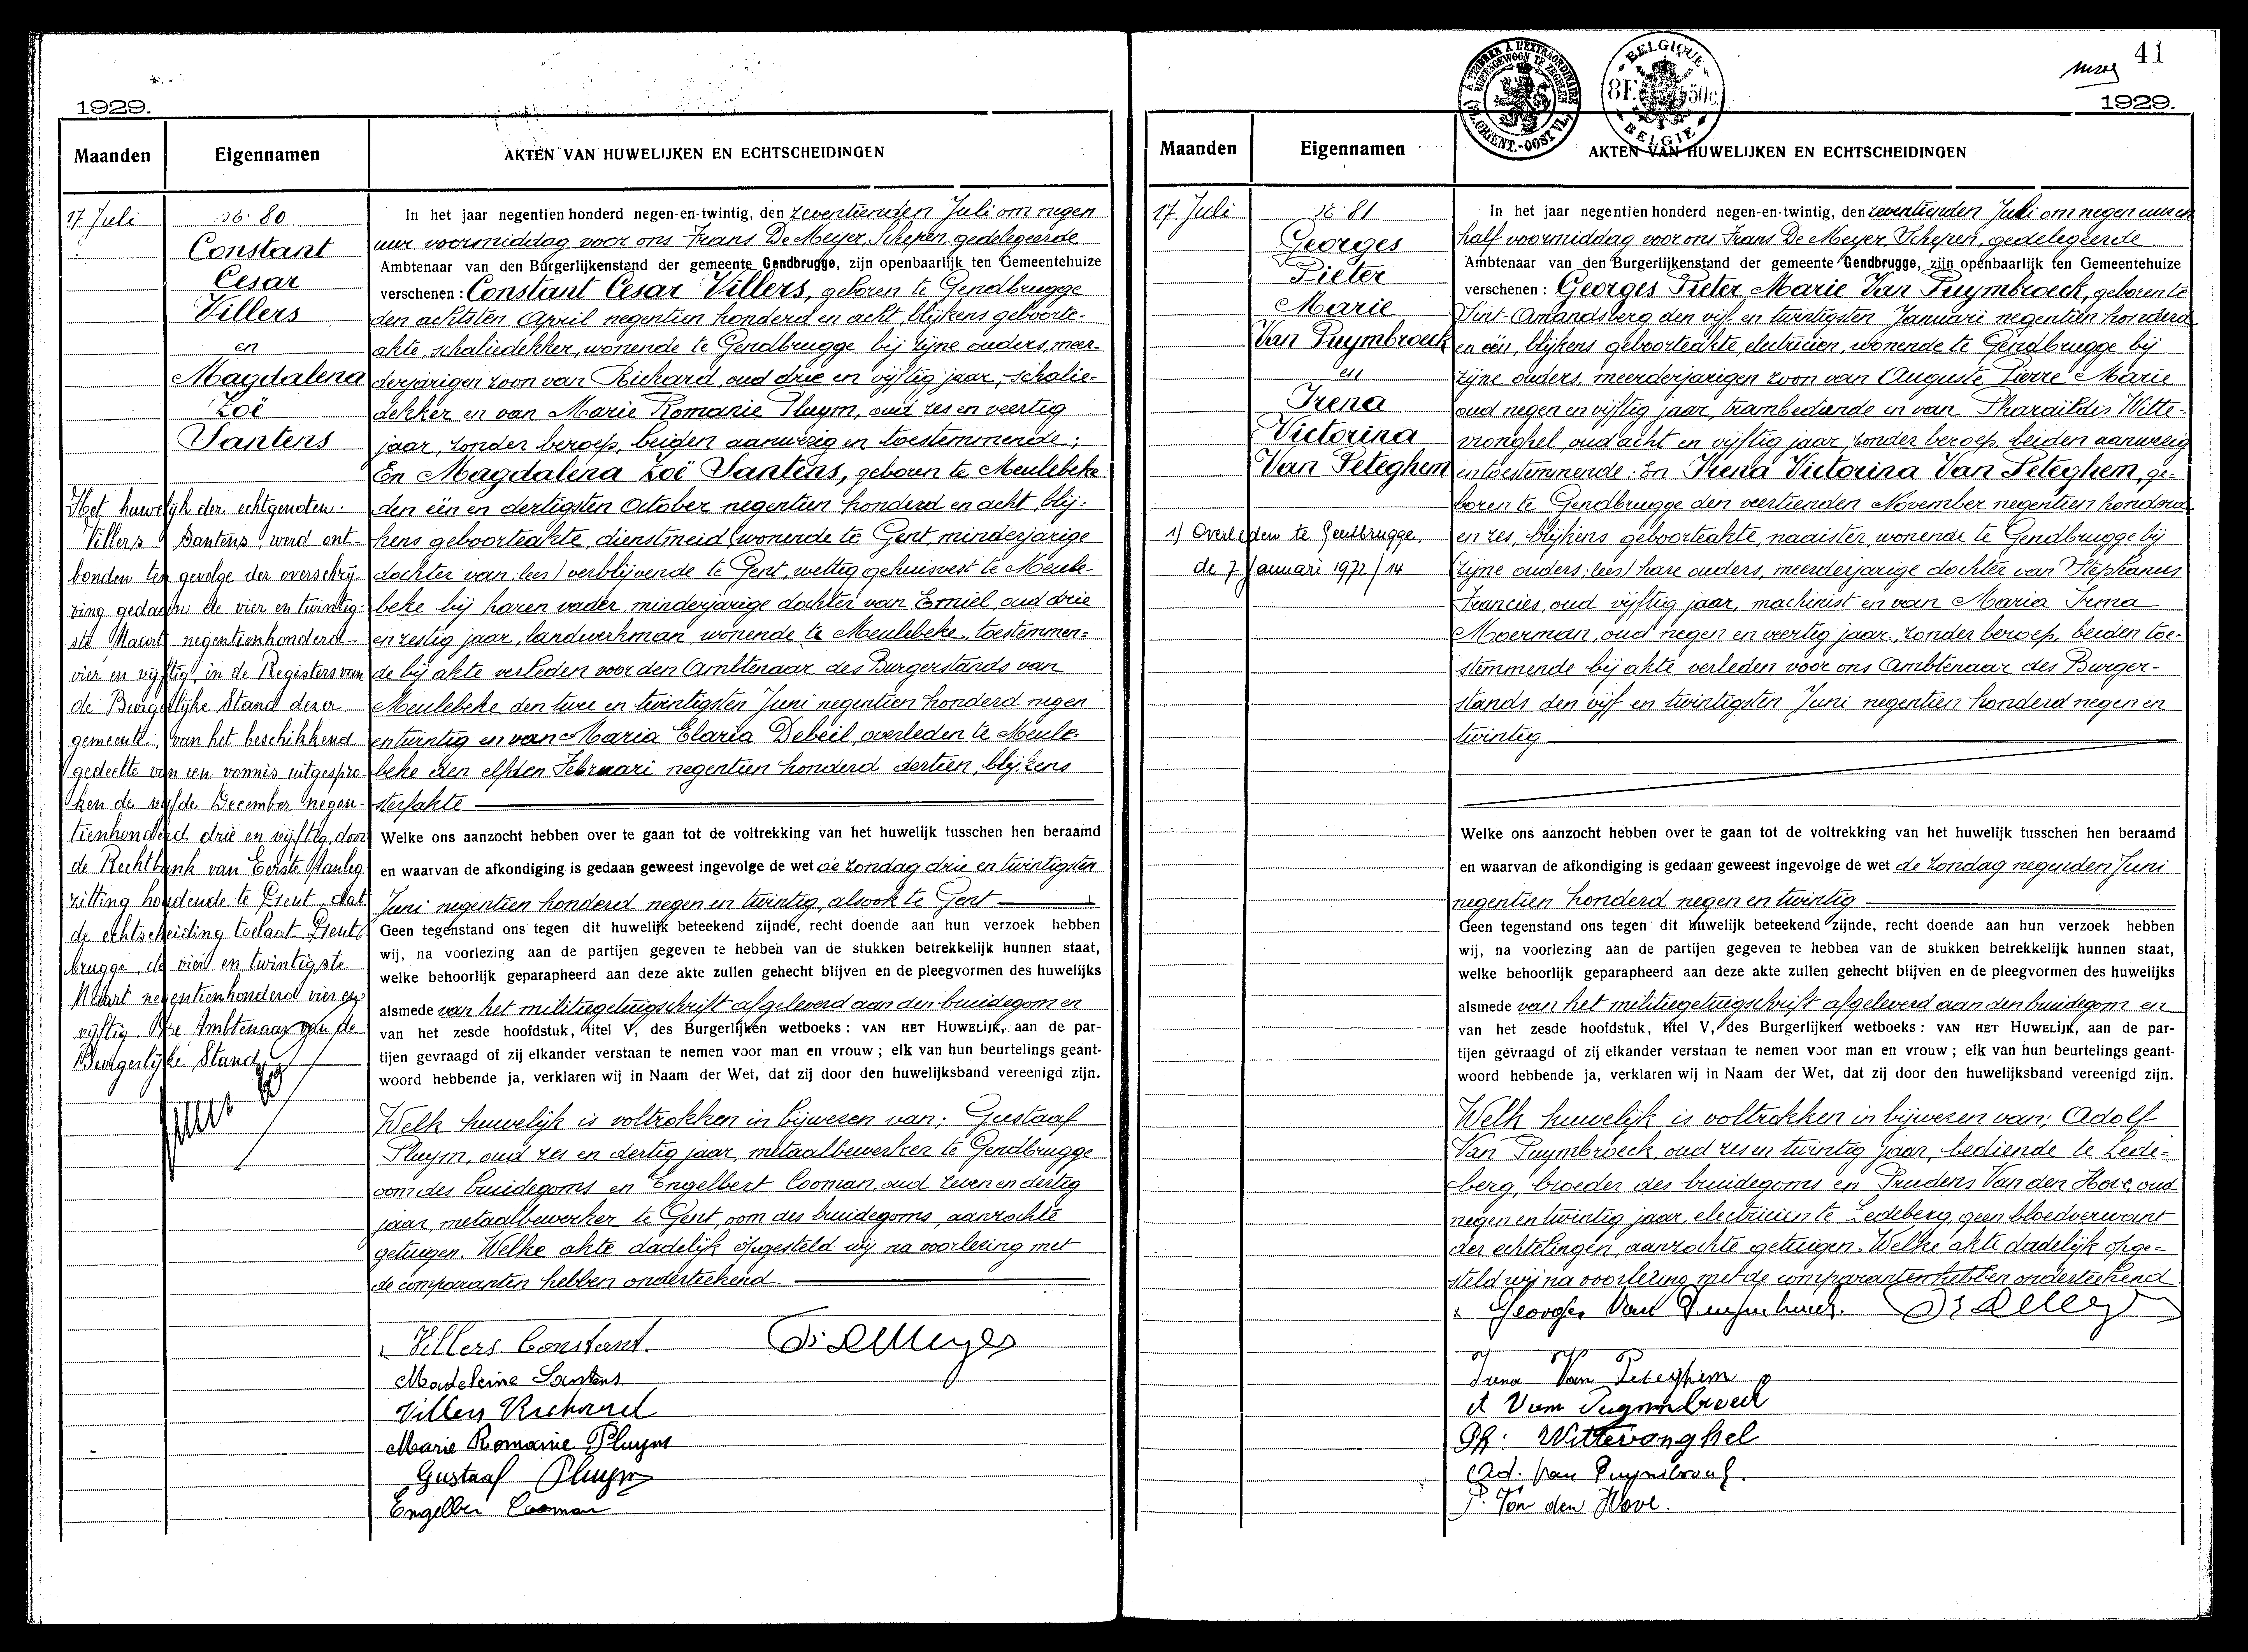 1929.
Maanden
Eigennamen
AKTEN VAN HUWELIJKEN EN ECHTSCHEIDINGEN
17 Juli
No. 80
Constant
Cesar
Villers
en
Magdalena
Zoë
Santens
Het huwelijk der echtgenoten
Villers Santens, werd ont-
bonden ten gevolge der overschrij-
ving gedaan de vier en twintig-
ste Maart negentienhonderd
vier en vijftig, in de Registers van
de Burgelijke Stand dezer
gemeente, van het beschikkend
gedeelte van een vonnis uitgespro-
ken de vijfde December negen-
tienhonderd drie en vijftig, door
de Rechtbank van Eerste Aanleg
zitting houdende te Gent, dat
de echtscheiding toelaat. Gent-
brugge, de vier en twintigste
Maart negentienhonderd vier en
vijftig. De Ambtenaar van de
Burgerlijke Stand,
In het jaar negentien honderd negen-en-twintig, den zeventienden Juli om negen
uur voormiddag voor ons Frans De Meyer, Schepen, gedelegeerde
Ambtenaar van den Burgerlijkenstand der gemeente Gendbrugge, zijn openbaarlijk ten Gemeentehuize
verschenen: Constant Cesar Villers, geboren te Gendbrugge
den achtsten April negentien honderd en acht, blijkens geboorte-
akte, schaliedekker, wonende te Gendbrugge bij zijne ouders, meer-
derjarigen zoon van Richard, oud drie en vijftig jaar, schalie-
dekker en van Marie Romanie Pluym, oud zes en veertig
jaar, zonder beroep, beiden aanwezig en toestemmende;
En Magdalena Zoë Santens, geboren te Meulebeke
den één en dertigsten October negentien honderd en acht, blij-
kens geboorteakte, dienstmeid (wonende te Gent, minderjarige
dochter van; lees) verblijvende te Gent, wettig gehuisvest te Meule-
beke bij haren vader, minderjarige dochter van Emiel, oud drie
en zestig jaar, landwerkman, wonende te Meulebeke, toestemmen-
de bij akte verleden voor den Ambtenaar des Burgerstands van
Meulebeke den twee en twintigsten Juni negentien honderd negen
en twintig en van Maria Elaria Debeil, overleden te Meule-
beke den elfden Februari negentien honderd dertien, blijkens
sterfakte
Welke ons aanzocht hebben over te gaan tot de voltrekking van het huwelijk tusschen hen beraamd
en waarvan de afkondiging is gedaan geweest ingevolge de wet de zondag drie en twintigsten
Juni negentien honderd negen en twintig, alsook te Gent
Geen tegenstand ons tegen dit huwelijk beteekend zijnde, recht doende aan hun verzoek hebben
wij, na voorlezing aan de partijen gegeven te hebben van de stukken betrekkelijk hunnen staat,
welke behoorlijk geparapheerd aan deze akte zullen gehecht blijven en de pleegvormen des huwelijks
alsmede van het militiegetuigschrift afgeleverd aan den bruidegom en
van het zesde hoofdstuk, titel V, des Burgerlijken wetboeks: VAN HET HUWELIJK, aan de par-
tijen gevraagd of zij elkander verstaan te nemen voor man en vrouw; elk van hun beurtelings geant-
woord hebbende ja, verklaren wij in Naam der Wet, dat zij door den huwelijksband vereenigd zijn.
Welk huwelijk is voltrokken in bijwezen van; Gustaaf
Pluym, oud zes en dertig jaar, metaalbewerker te Gendbrugge
oom des bruidegoms en Engelbert Cooman, oud zeven en dertig
jaar, metaalbewerker te Gent, oom des bruidegoms, aanzochte
getuigen. Welke akte dadelijk opgesteld wij na voorlezing met
de comparanten hebben onderteekend.
Villers Constant. Fr. De Meyer
Madeleine Santens
Villers Richard
Marie Romanie Pluym
Gustaaf Pluym
Engelber Cooman
A TIMBRER A L'EXTRAORDINAIRE
BUITENGEWOON TE ZEGELEN
FL. ORIENT.-OOST VL.
BELGIQUE
8F. 50c.
BELGIE
41
1929.
Maanden
Eigennamen
AKTEN VAN HUWELIJKEN EN ECHTSCHEIDINGEN
17 Juli
No. 81
Georges
Pieter
Marie
Van Puymbroeck
en
Irena
Victorina
Van Peteghem
1) Overleden te Gentbrugge,
de 7 Januari 1972 / 14
In het jaar negentien honderd negen-en-twintig, den zeventienden Juli om negen uur en
half voormiddag voor ons Frans De Meyer, Schepen, gedelegeerde
Ambtenaar van den Burgerlijkenstand der gemeente Gendbrugge, zijn openbaarlijk ten Gemeentehuize
verschenen: Georges Pieter Marie Van Puymbroeck, geboren te
Sint-Amandsberg den vijf en twintigsten Januari negentien honderd
en één, blijkens geboorteakte, electricien, wonende te Gendbrugge bij
zijne ouders, meerderjarigen zoon van Auguste Pierre Marie
oud negen en vijftig jaar, trambediende en van Pharaïldis Witte-
vronghel, oud acht en vijftig jaar, zonder beroep, beiden aanwezig
en toestemmende; En Irena Victorina Van Peteghem, ge-
boren te Gendbrugge den veertienden November negentien honderd
en zes, blijkens geboorteakte, naaister, wonende te Gendbrugge bij
(zijne ouders; lees) hare ouders, meerderjarige dochter van Stephanus
Francies, oud vijftig jaar, machinist en van Maria Irma
Moerman, oud negen en veertig jaar, zonder beroep, beiden toe-
stemmende bij akte verleden voor ons Ambtenaar des Burger-
stands den vijf en twintigsten Juni negentien honderd negen en
twintig
Welke ons aanzocht hebben over te gaan tot de voltrekking van het huwelijk tusschen hen beraamd
en waarvan de afkondiging is gedaan geweest ingevolge de wet de zondag negenden Juni
negentien honderd negen en twintig
Geen tegenstand ons tegen dit huwelijk beteekend zijnde, recht doende aan hun verzoek hebben
wij, na voorlezing aan de partijen gegeven te hebben van de stukken betrekkelijk hunnen staat,
welke behoorlijk geparapheerd aan deze akte zullen gehecht blijven en de pleegvormen des huwelijks
alsmede van het militiegetuigschrift afgeleverd aan den bruidegom en
van het zesde hoofdstuk, titel V, des Burgerlijken wetboeks: VAN HET HUWELIJK, aan de par-
tijen gevraagd of zij elkander verstaan te nemen voor man en vrouw; elk van hun beurtelings geant-
woord hebbende ja, verklaren wij in Naam der Wet, dat zij door den huwelijksband vereenigd zijn.
Welk huwelijk is voltrokken in bijwezen van; Adolf
Van Puymbroeck, oud zes en twintig jaar, bediende te Lede-
berg, broeder des bruidegoms en Prudens Van den Hove, oud
negen en twintig jaar, electricien te Ledeberg, geen bloedverwant
der echtelingen, aanzochte getuigen. Welke akte dadelijk opge-
steld wij na voorlezing met de comparanten hebben onderteekend
Georges Van Puymbroeck. Fr. De Meyer
Irena Van Peteghem
A Van Puymbroeck
Ph. Wittevronghel
Ad. Van Puymbroeck.
P. Van den Hove.